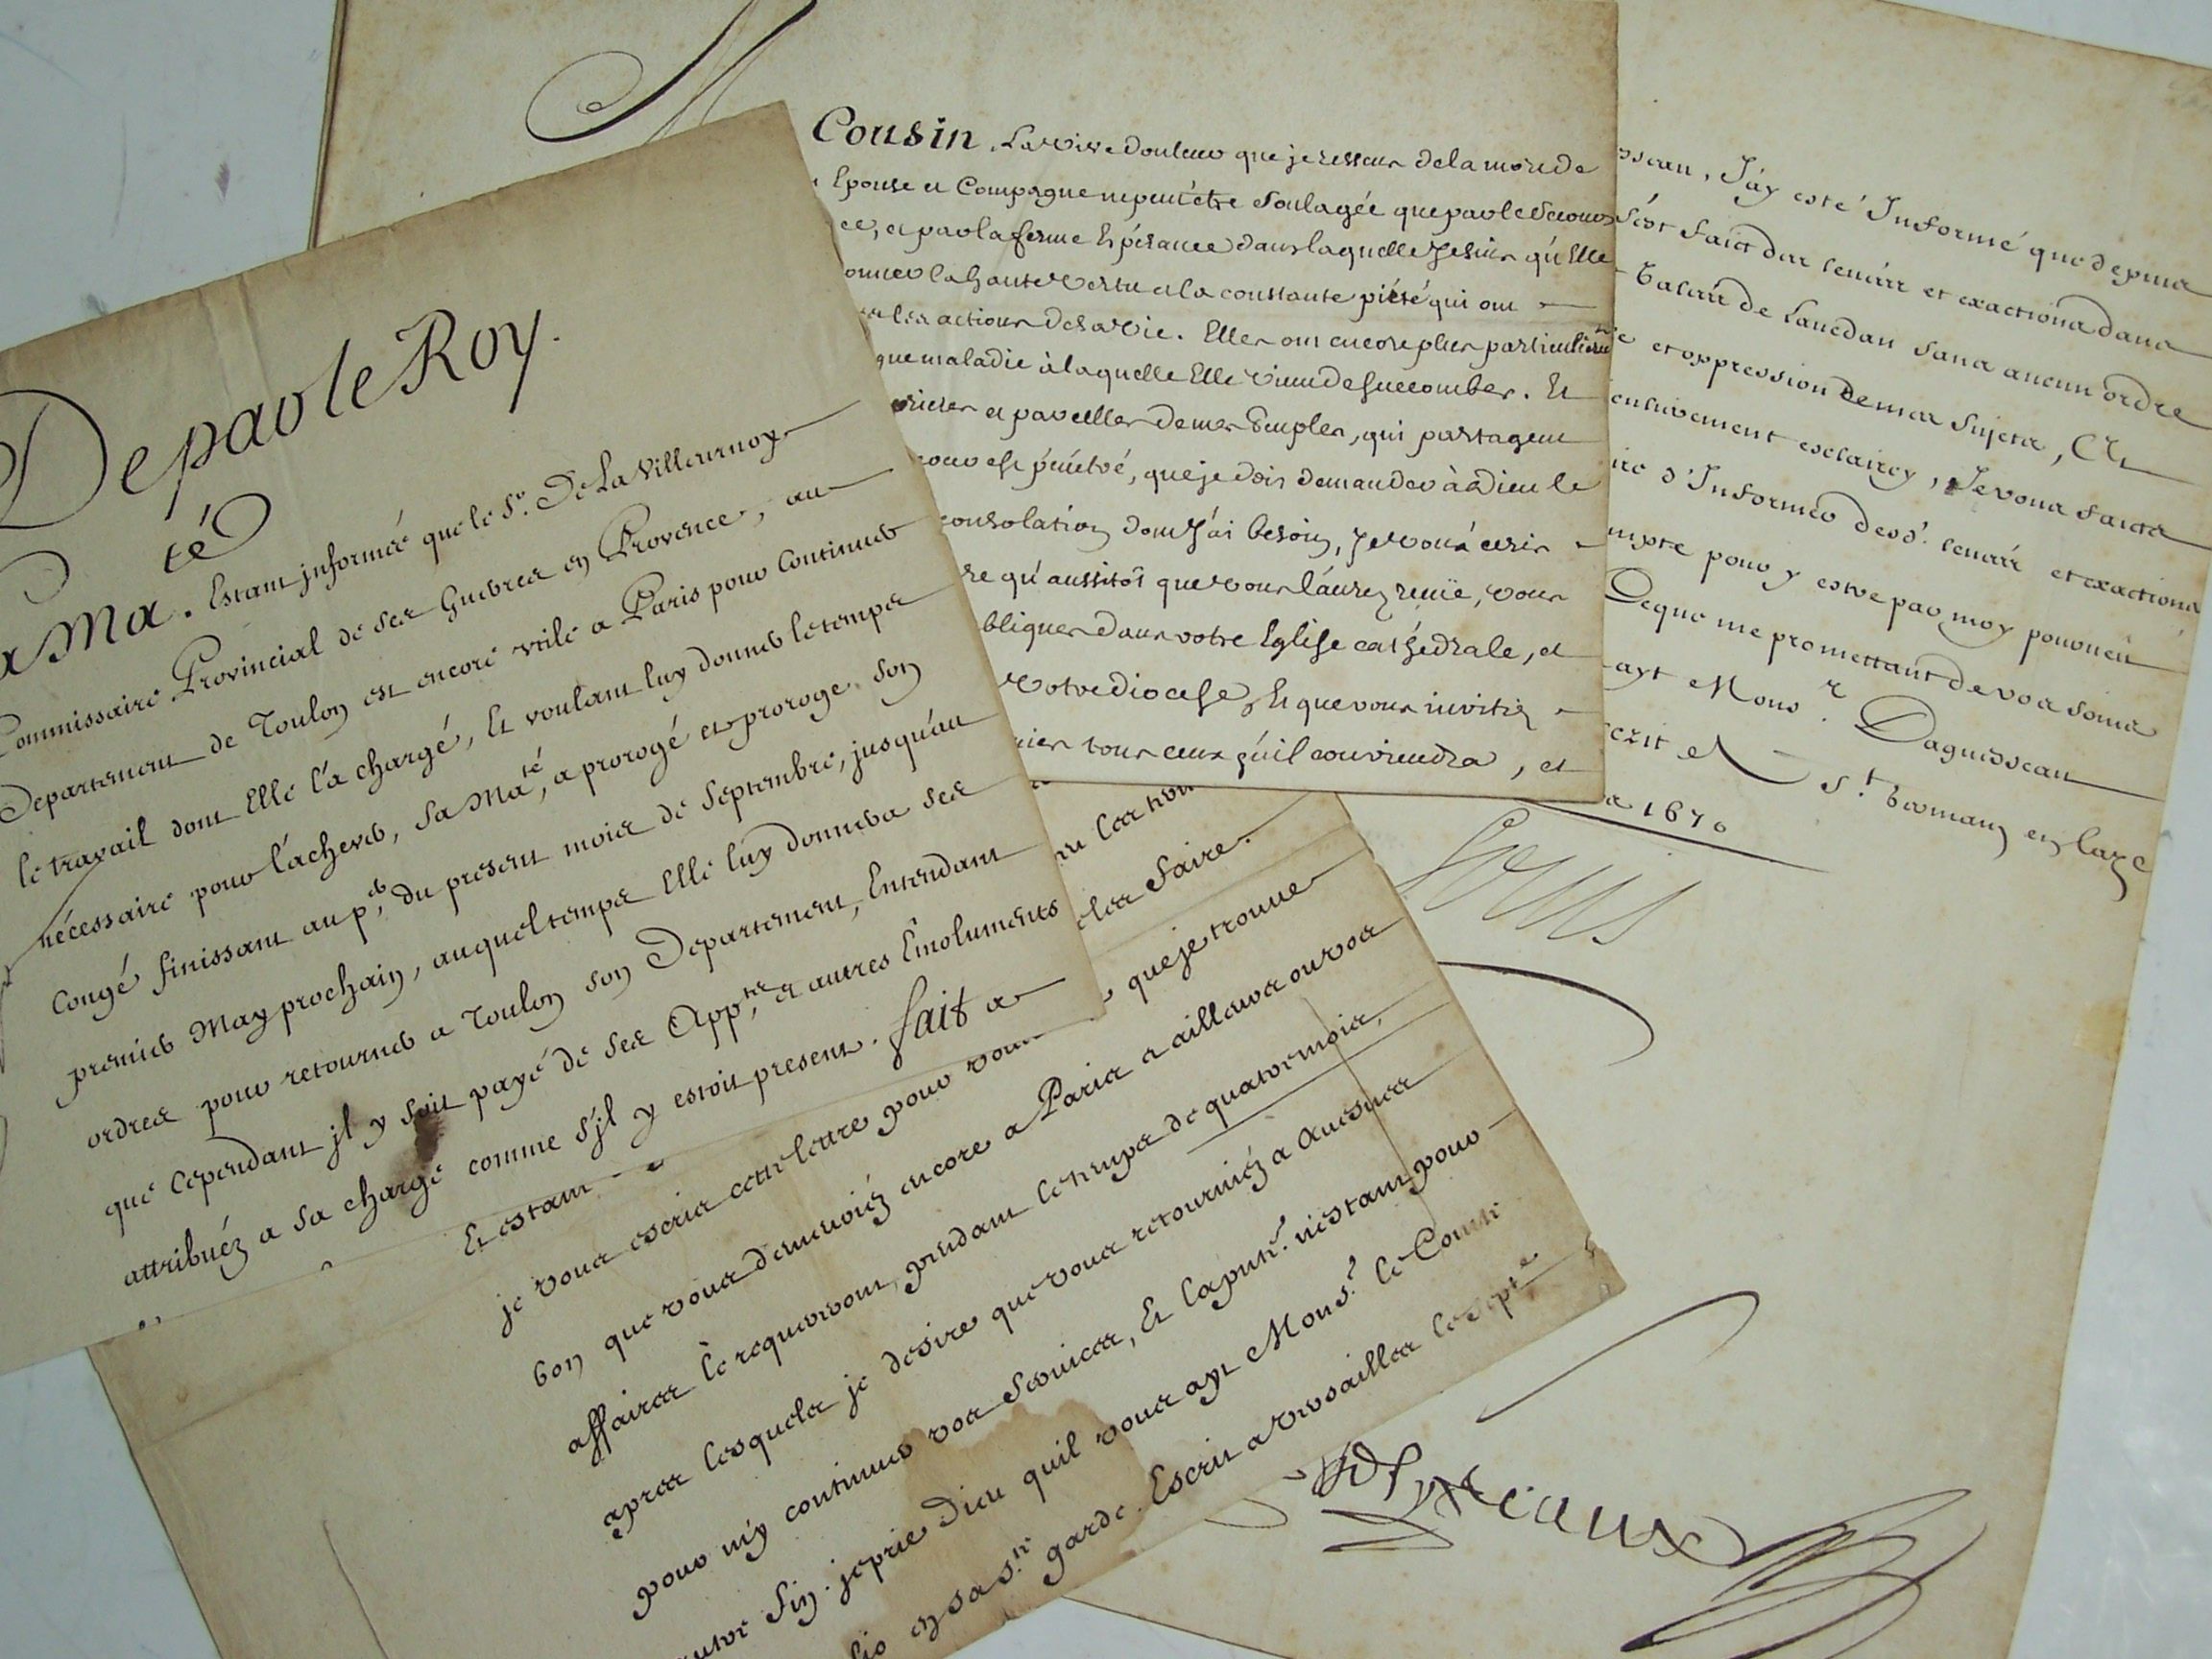 De par le Roy.
Sa Ma.té Estant jnformée que le Sr. De La Villeurnoy
Commissaire Provincial de ses Guerres en Provence, au
Departement de Toulon est encore vtile a Paris pour Continuer
le travail dont Elle l'a chargé, Et voulant luy donner le temps
nécessaire pour l'achever, Sa Ma.té, a prorogé et proroge son
Congé finissant au p.er, du present mois de Septembre, jusqu'au
premier May prochain, auquel temps Elle luy donnera ses
ordres pour retourner a Toulon son Departement, Entendant
que cependant jl y soit payé de ses App.ts, et autres Emoluments
attribuéz a sa charge comme s'jl y estoit present. fait a
Cousin, La vive douleur que je ressens de la mort de
Epouse et Compagne ne peut être soulagée que par le secours
ce, et par la ferme Espérance dans laquelle Je suis qu'Elle
onner la haute vertu et la constante piété qui ont
les actions de sa vie. Elles ont encore plus particulierem.t
gue maladie à laquelle Elle vient de succomber. Et
rieres et par celles de mes Peuples, qui partagent
cœur est pénétré, que je dois demander à Dieu le
consolation dont J'ai besoin, Je vous écris
re qu'aussitôt que vous l'aurez reçuë, vous
bliques dans votre Eglise cathédrale, et
votre diocese, Et que vous invitiez
rier tous ceux qu'il conviendra, et
sseau, J'ay esté Informé que depuis
s'est faict des levées et exactions dans
de Lavedan sans aucun ordre
et oppression de mes sujets, Et
ensivement esclaircy, Je vous faicts
ire d'Informer desd. levées et exactions
mpte pour y estre par moy pourveu
Ce que me promettant de vos soins
ayt Mons.r Daguesseau
crit a St. Germain en laye
1670
Louis
les faire.
Et estant
je vous escris cette lettre pour vous que je trouve
bon que vous demeuriéz encore a Paris et ailleurs ou vos
affaires le requerront, pendant le temps de quatre mois,
apres lesquels je desire que vous retourniéz a
pour m'y continuer vos services, Et la pnte. n'estant pour
autre fin. je prie Dieu quil vous ayt Mons.r le Comte
en sa s.te garde. Escrit a Versailles le sept.e